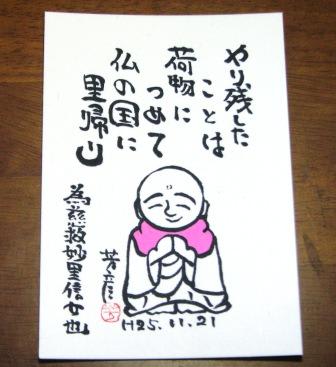 やり残した
ことは
荷物に
つめて
仏の国に
里帰り
為慈救妙里信女也
芳彦
H25.11.21